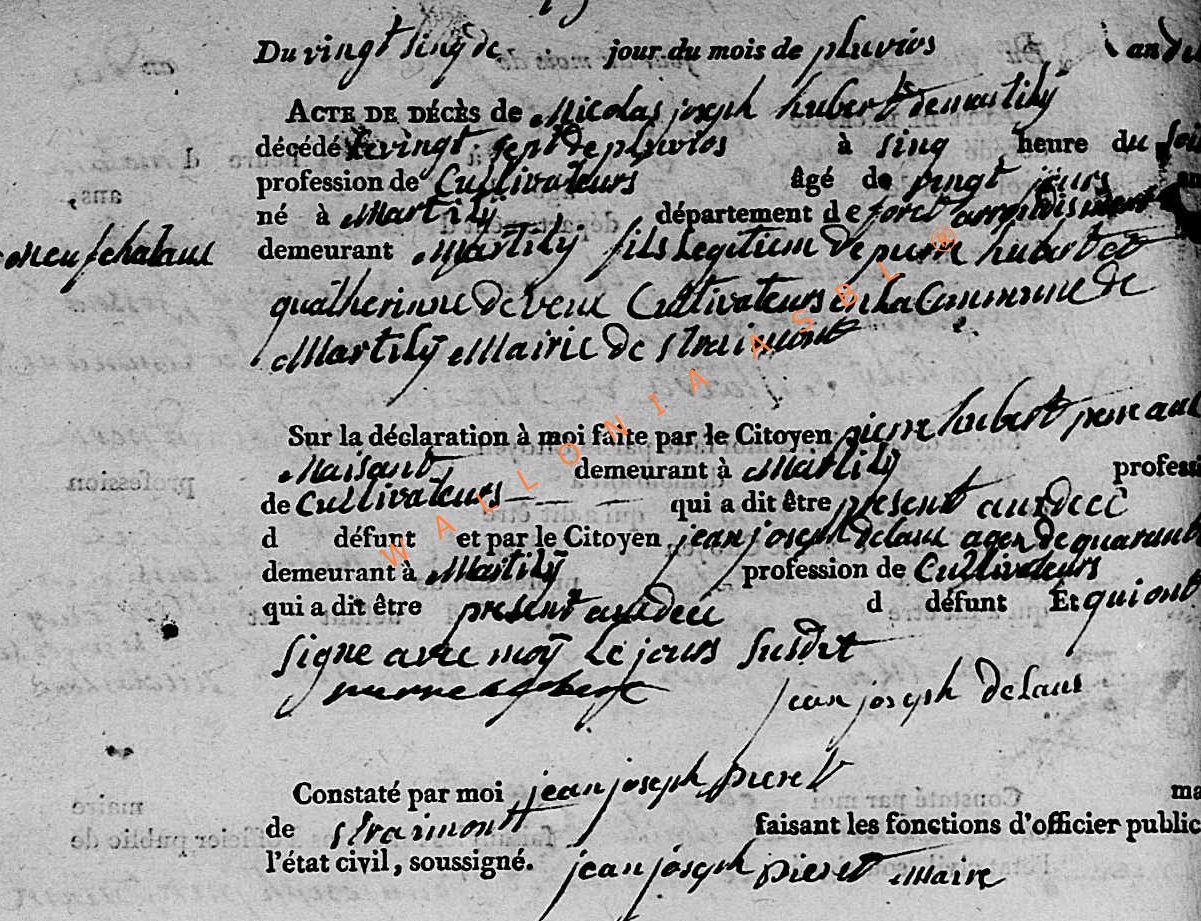 Du vingt sinq de jour du mois de pluvios an di
ACTE DE DÉCÈS de Nicolas joseph hubert de martilÿ
décédé le vingt sept de pluvios à sinq heure du soi
profession de Cultivateurs âgé de vingt jours an
né à Martilÿ département de foret arrondisment
neufchataus
demeurant Martilÿ fils Legitime de pierre hubert et
quatherinne deveux Cultivateurs en La Commune de
Martilÿ Mairie de straimont
Sur la déclaration à moi faite par le Citoyen pierre hubert
demeurant à Martilÿ professi
de Cultivateurs qui a dit être present audecé
d défunt et par le Citoyen jean joseph delaus agée de quarant
demeurant à Martilÿ profession de Cultivateurs
qui a dit être present audecé d défunt Et qui ont
signe avec moÿ Le jours susdit
jean joseph delaus
Constaté par moi jean joseph pieret ma
de straimont faisant les fonctions d'officier public
l'état civil, soussigné.
jean joseph pieret maire
WALLONIA ASBL ®